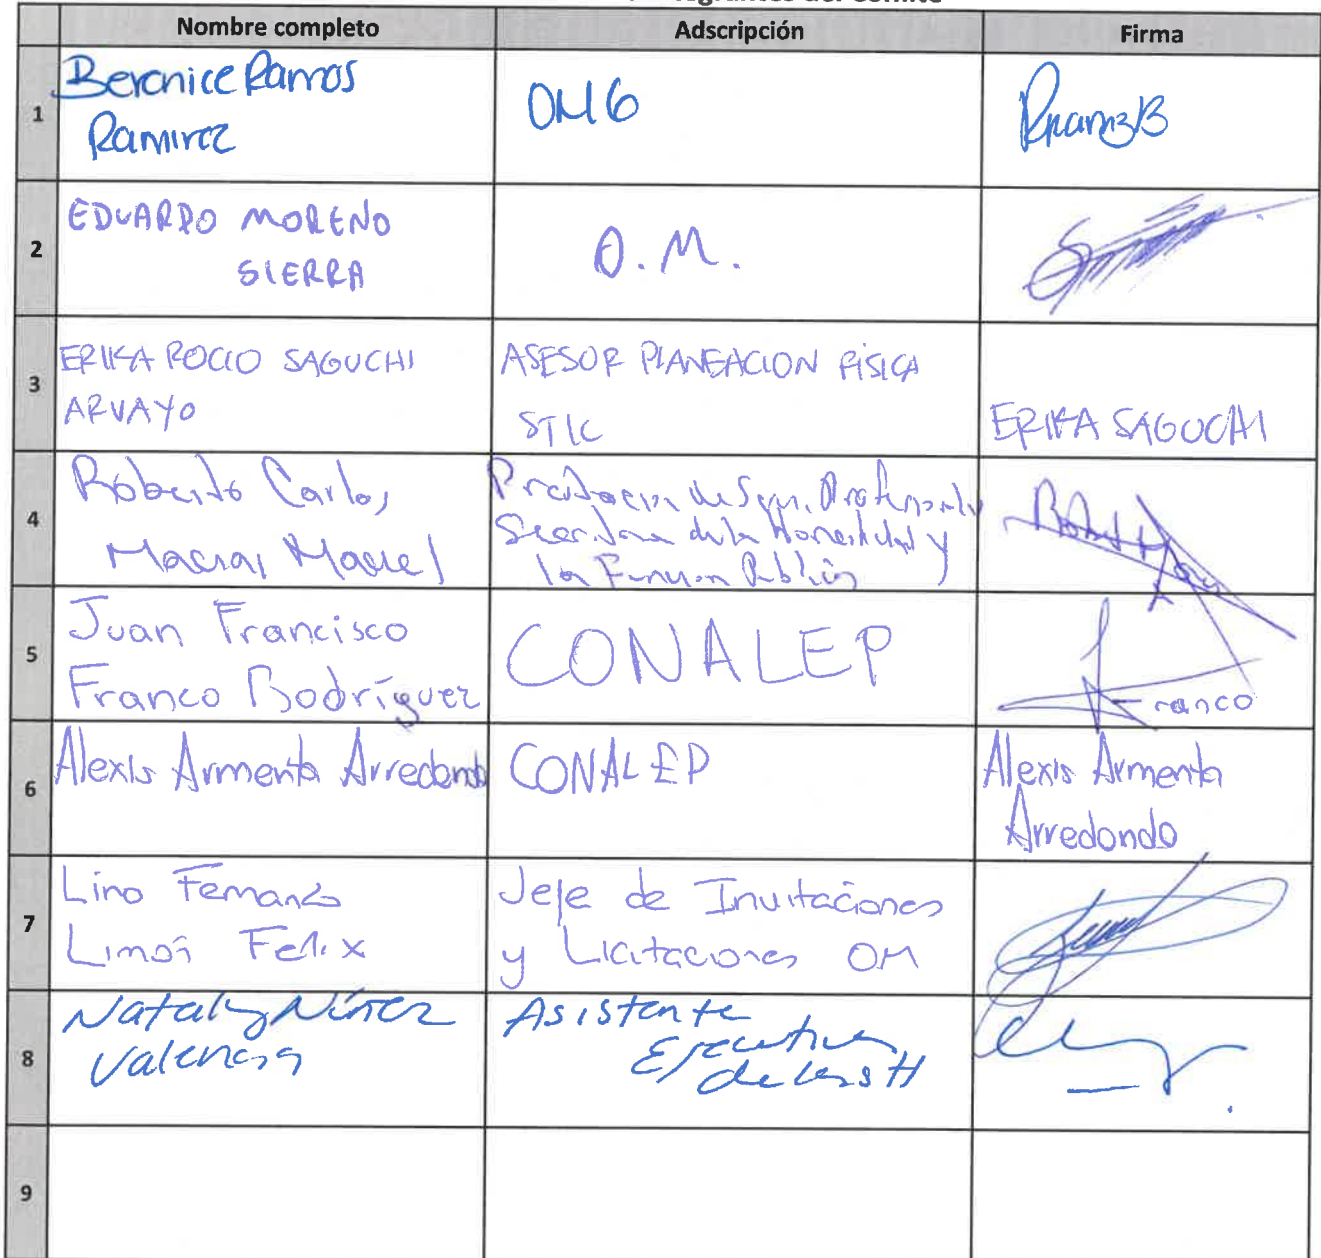 Nombre completo Adscripción Firma
1
Berenice Ramos
Ramirez
OM6
2
EDUARDO MORENO
SIERRA
O.M.
3
ERIKA ROCIO SAGUCHI
ARVAYO
ASESOR PLANEACION FISICA
STIC
ERIKA SAGUCHI
4
Roberto Carlos
Macias Maciel
Secretaria de la Honestidad y
la Funcion Publica
5
Juan Francisco
Franco Rodríguez
CONALEP
Franco
6
Alexis Armenta Arredondo
CONALEP
Alexis Armenta
Arredondo
7
Lino Fernando
Limón Felix
Jefe de Invitaciones
y Licitaciones OM
8
Nataly Núñez
Valencia
Asistente
Ejecutiva
9